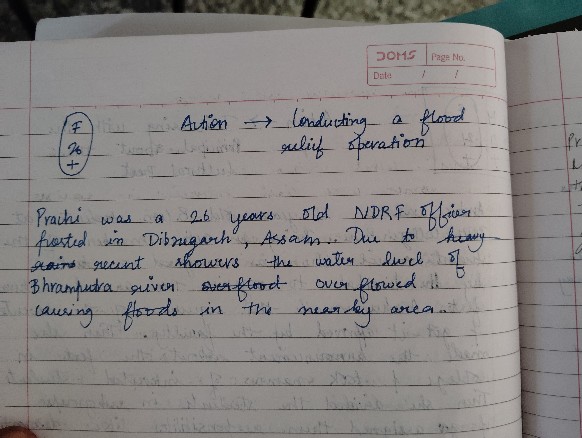 DOMS Page No.
Date / /
F
26
+
Action → Conducting a flood
relief operation
Prachi was a 26 years old NDRF officer
posted in Dibrugarh, Assam. Due to heavy
rains recent showers the water level of
Bhramputra river overflood overflowed
causing floods in the nearby area.